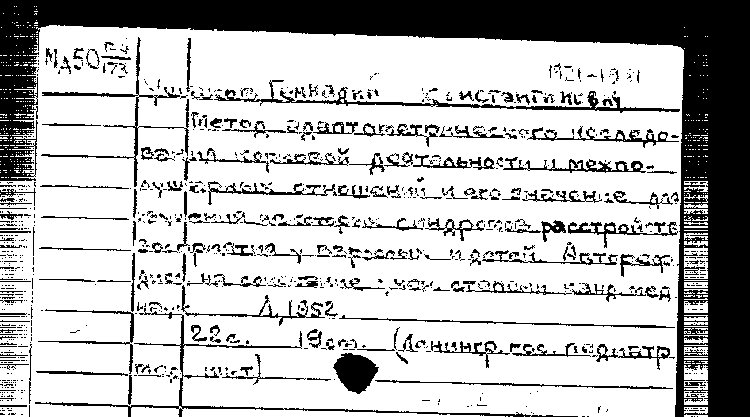 МД50 173
1921-1981
Ушаков, Геннадий Константинович
Метод адаптометрического исследо-
вания корковой деятельности и межпо-
лушарных отношений и его значение для
изучения некоторых синдромов расстройств
восприятия у взрослых и детей. Автореф.
дисс. на соискание учен. степени канд. мед.
наук. Л., 1952.
22 с. 19 см. (Ленингр. гос. педиатр.
мед. инст)